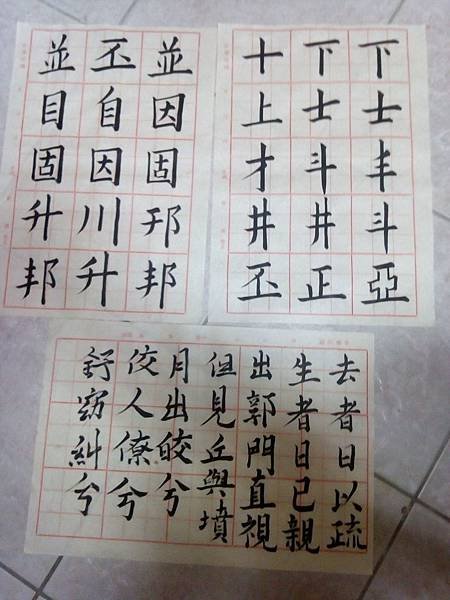 下士丰斗亞
下士斗井正
十上才井丕
並因固邦
丕自因川升
並目固升邦
去者日以疏
生者日已親
出郭門直視
但見丘與墳
月出皎兮
佼人僚兮
舒窈糾兮